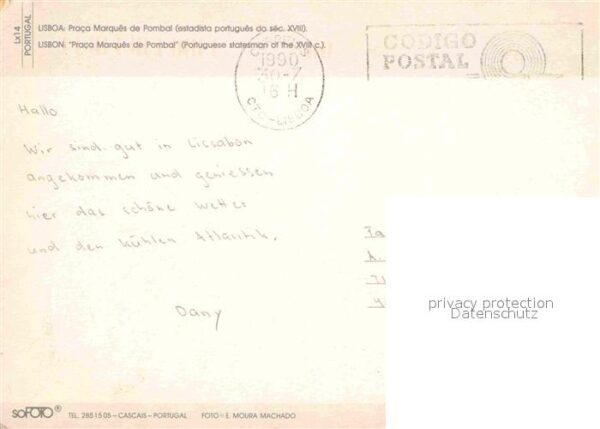 LX14
PORTUGAL
LISBOA: Praça Marquês de Pombal (estadista português do séc. XVIII).
LISBON: "Praça Marquês de Pombal" (Portuguese statesman of the XVIII c.).
1990
30-7
16 H
CTC-LISBOA
CÓDIGO
POSTAL
Hallo
Wir sind gut in Lissabon
angekommen und geniessen
hier das schöne Wetter
und den kühlen Atlantik.
Dany
Fa
A.
privacy protection
Datenschutz
SOFOTO® TEL. 285 15 05 – CASCAIS – PORTUGAL FOTO – E. MOURA MACHADO